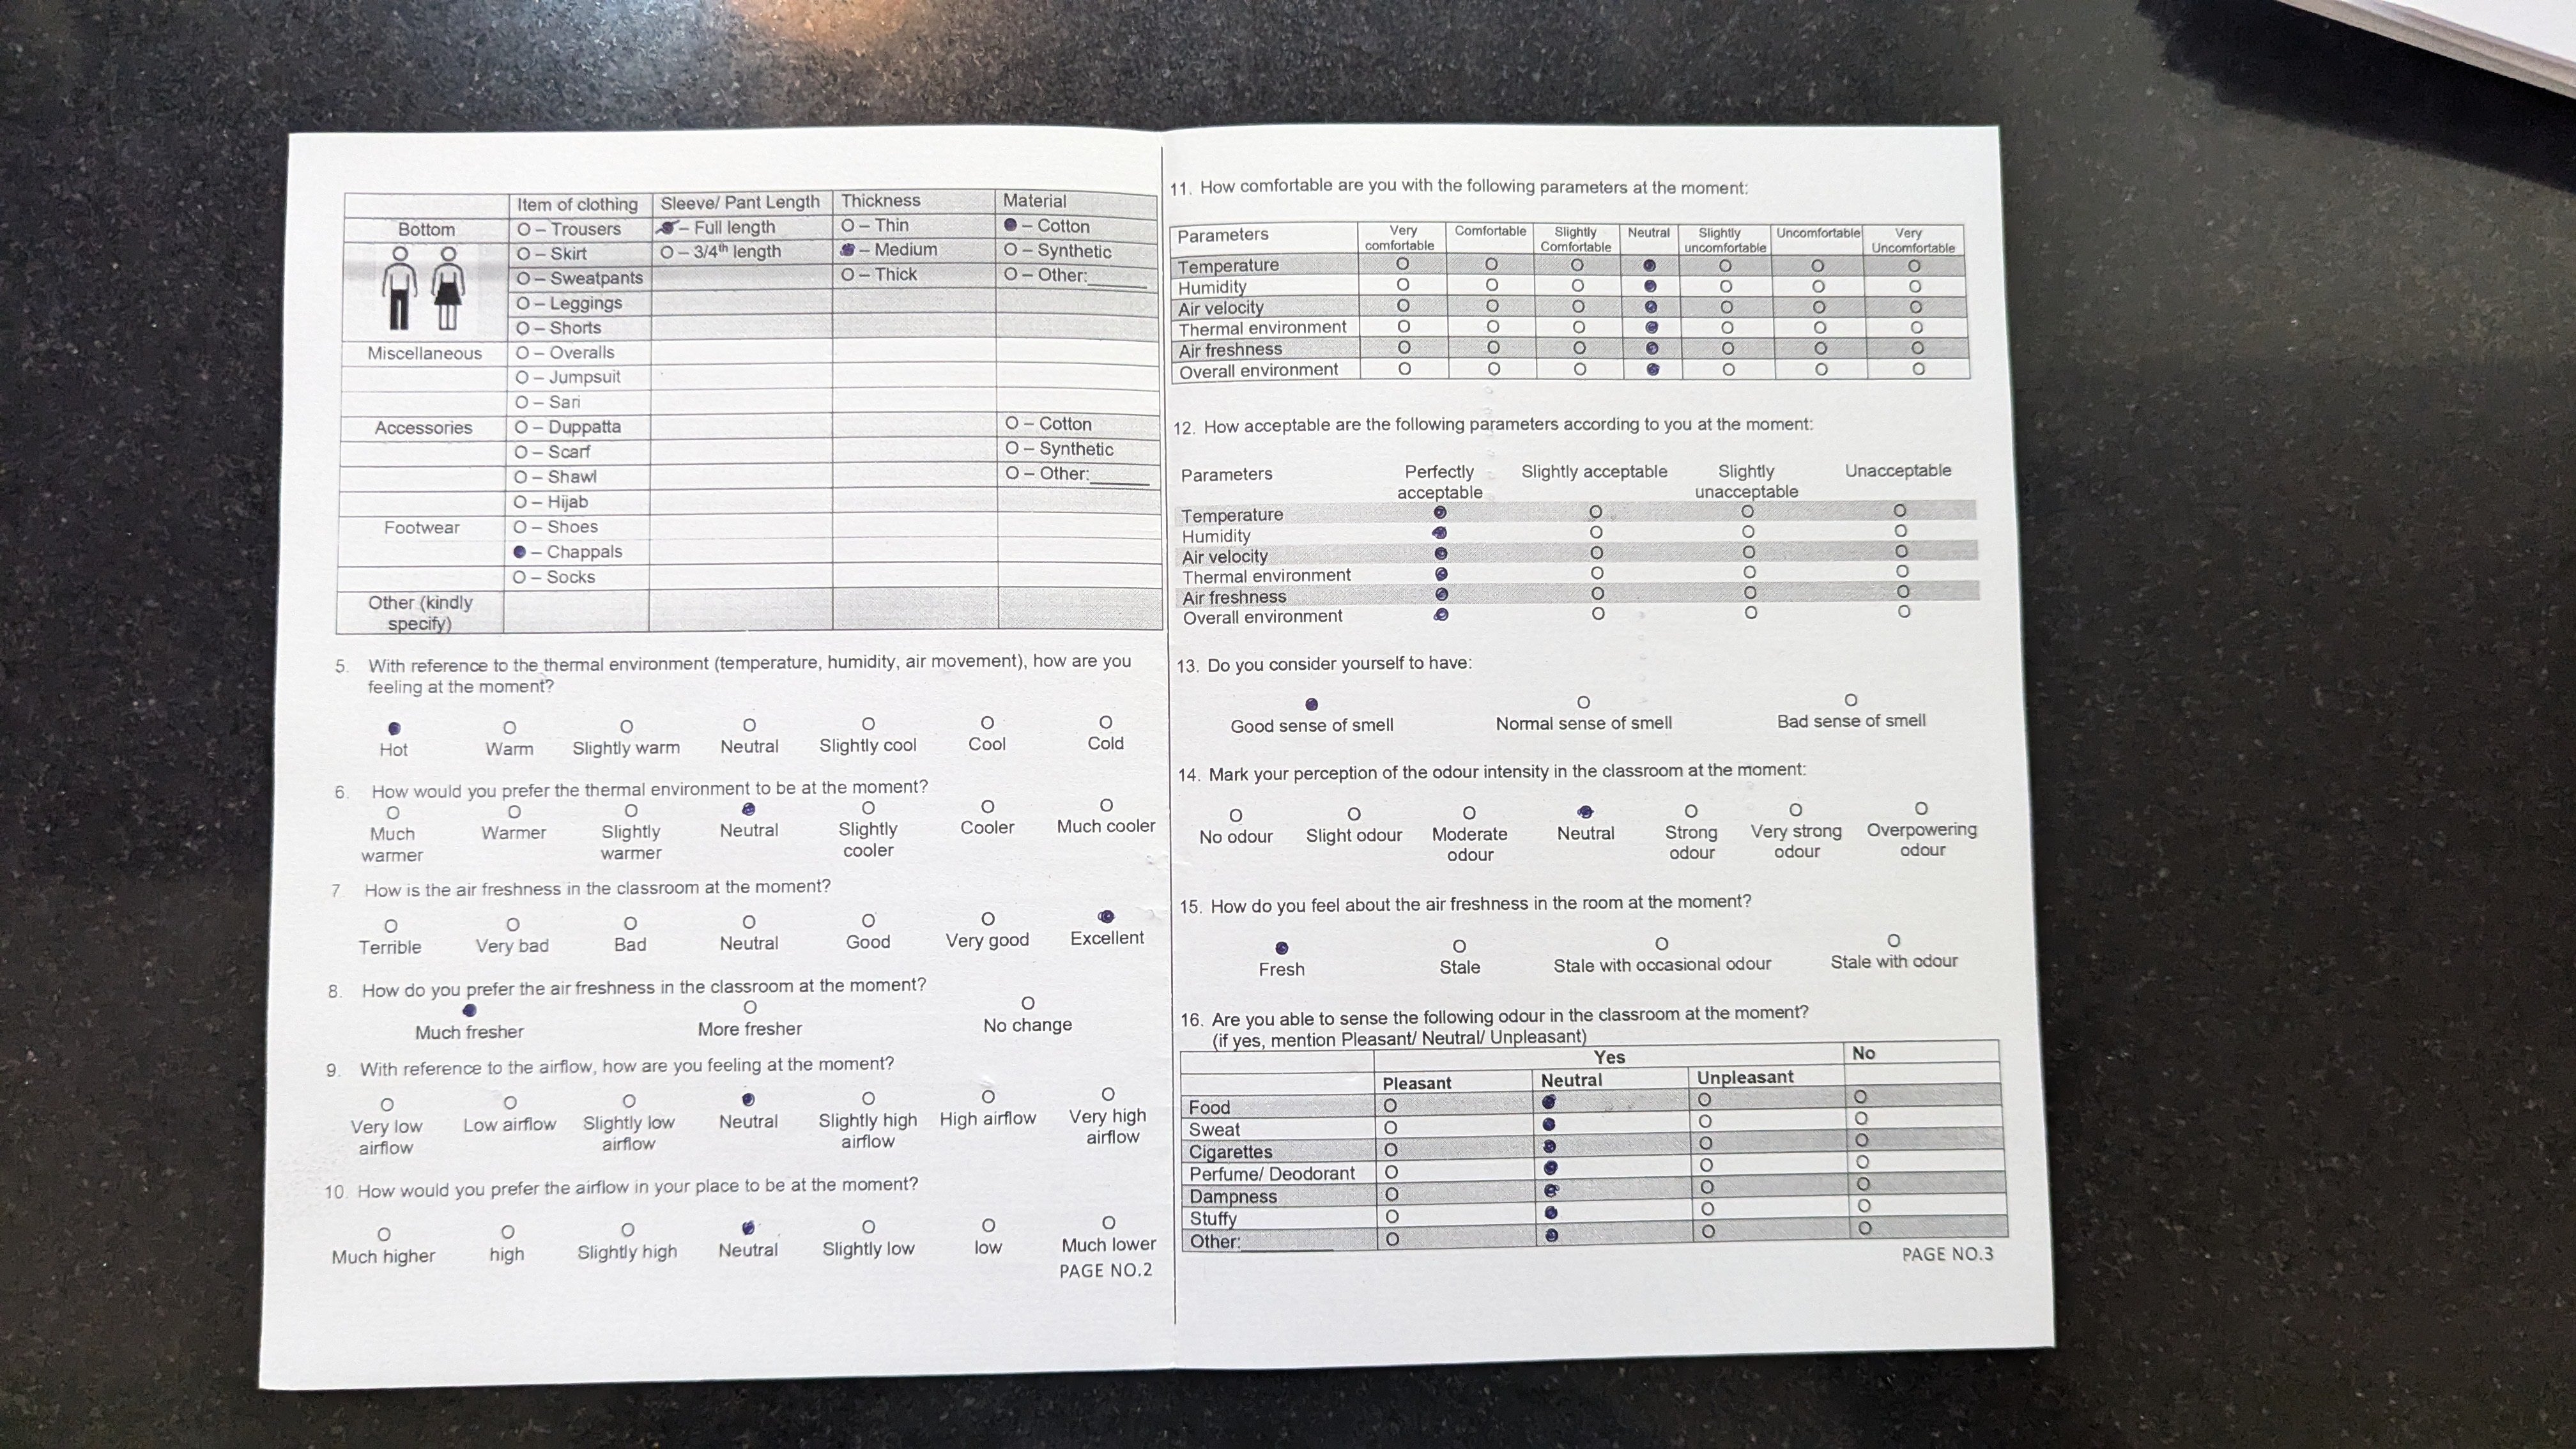 Item of clothing Sleeve/ Pant Length Thickness Material
Bottom O – Trousers ● – Full length O – Thin ● – Cotton
O – Skirt O – 3/4th length ● – Medium O – Synthetic
O – Sweatpants O – Thick O – Other:______
O – Leggings
O – Shorts
Miscellaneous O – Overalls
O – Jumpsuit
O – Sari
Accessories O – Duppatta O – Cotton
O – Scarf O – Synthetic
O – Shawl O – Other:______
O – Hijab
Footwear O – Shoes
● – Chappals
O – Socks
Other (kindly
specify)
5. With reference to the thermal environment (temperature, humidity, air movement), how are you
feeling at the moment?
● O O O O O O
Hot Warm Slightly warm Neutral Slightly cool Cool Cold
6. How would you prefer the thermal environment to be at the moment?
O O O ● O O O
Much Warmer Slightly Neutral Slightly Cooler Much cooler
warmer warmer cooler
7 How is the air freshness in the classroom at the moment?
O O O O O O ●
Terrible Very bad Bad Neutral Good Very good Excellent
8. How do you prefer the air freshness in the classroom at the moment?
● O O
Much fresher More fresher No change
9. With reference to the airflow, how are you feeling at the moment?
O O O ● O O O
Very low Low airflow Slightly low Neutral Slightly high High airflow Very high
airflow airflow airflow airflow
10. How would you prefer the airflow in your place to be at the moment?
O O O ● O O O
Much higher high Slightly high Neutral Slightly low low Much lower
PAGE NO.2
11. How comfortable are you with the following parameters at the moment:
Parameters Very Comfortable Slightly Neutral Slightly Uncomfortable Very
comfortable Comfortable uncomfortable Uncomfortable
Temperature O O O ● O O O
Humidity O O O ● O O O
Air velocity O O O ● O O O
Thermal environment O O O ● O O O
Air freshness O O O ● O O O
Overall environment O O O ● O O O
12. How acceptable are the following parameters according to you at the moment:
Parameters Perfectly Slightly acceptable Slightly Unacceptable
acceptable unacceptable
Temperature ● O O O
Humidity ● O O O
Air velocity ● O O O
Thermal environment ● O O O
Air freshness ● O O O
Overall environment ● O O O
13. Do you consider yourself to have:
● O O
Good sense of smell Normal sense of smell Bad sense of smell
14. Mark your perception of the odour intensity in the classroom at the moment:
O O O ● O O O
No odour Slight odour Moderate Neutral Strong Very strong Overpowering
odour odour odour odour
15. How do you feel about the air freshness in the room at the moment?
● O O O
Fresh Stale Stale with occasional odour Stale with odour
16. Are you able to sense the following odour in the classroom at the moment?
(if yes, mention Pleasant/ Neutral/ Unpleasant)
Yes No
Pleasant Neutral Unpleasant
Food O ● O O
Sweat O ● O O
Cigarettes O ● O O
Perfume/ Deodorant O ● O O
Dampness O ● O O
Stuffy O ● O O
Other:__________ O ● O O
PAGE NO.3